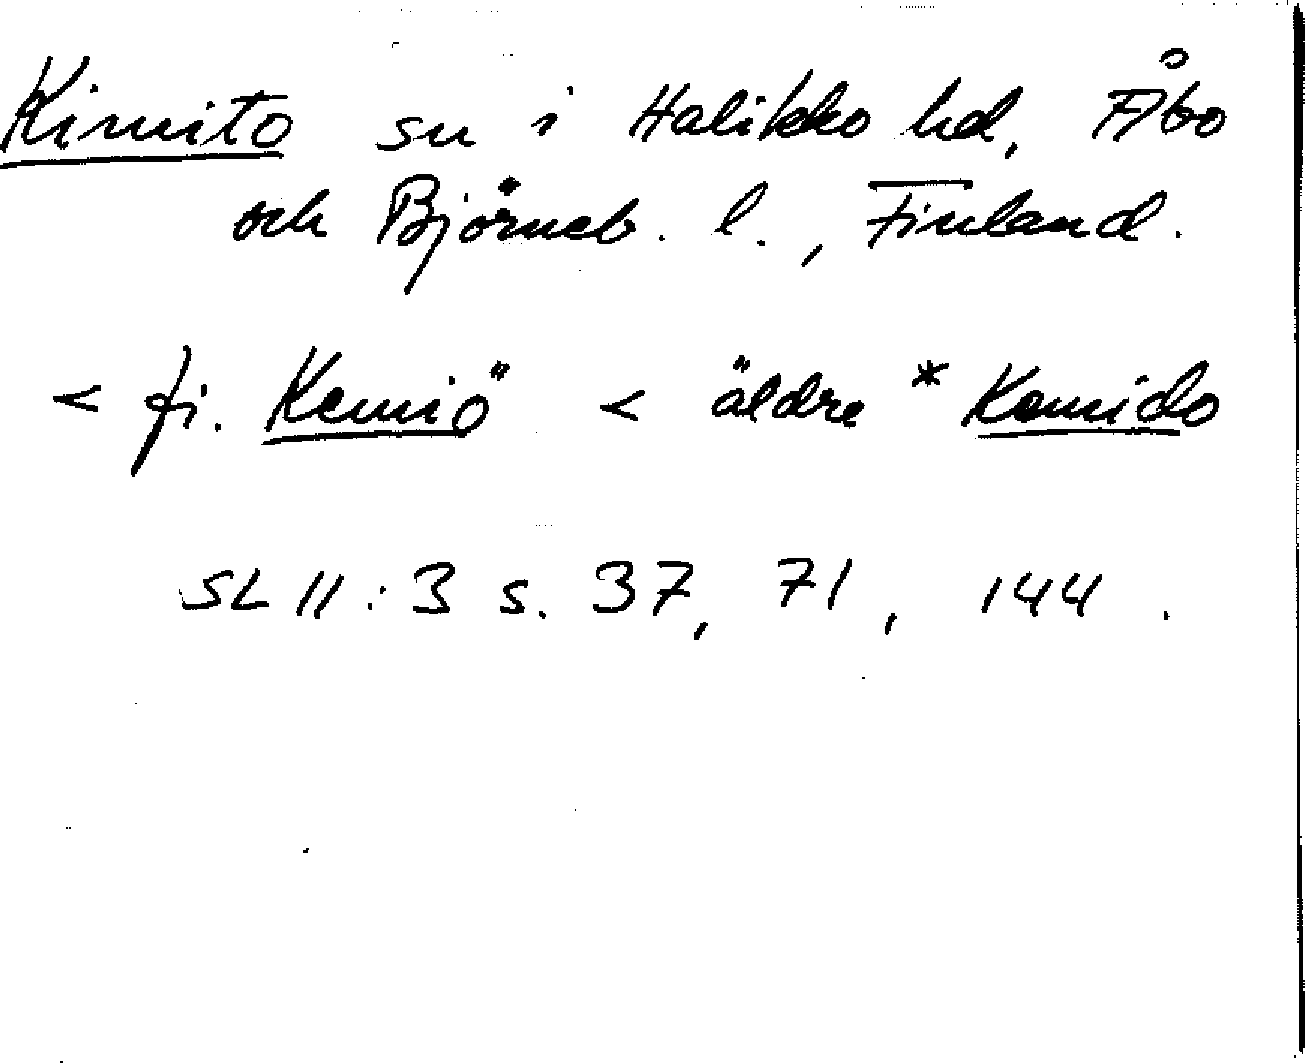 Kimito sn i Halikko hd, Åbo
och Björneb. l., Finland.
< fi. Kemiö < äldre *Kemido
SL II:3 s. 37, 71, 144.